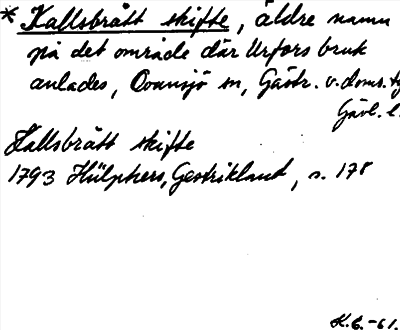 * Kallsbrått skifte, äldre namn
på det område där Urfors bruk
anlades, Ovansjö sn, Gästr. v. doms.
Gävl. l.
Kallsbrått skifte
1793 Hülphers, Gestrikland, s. 178
K.G.-61.